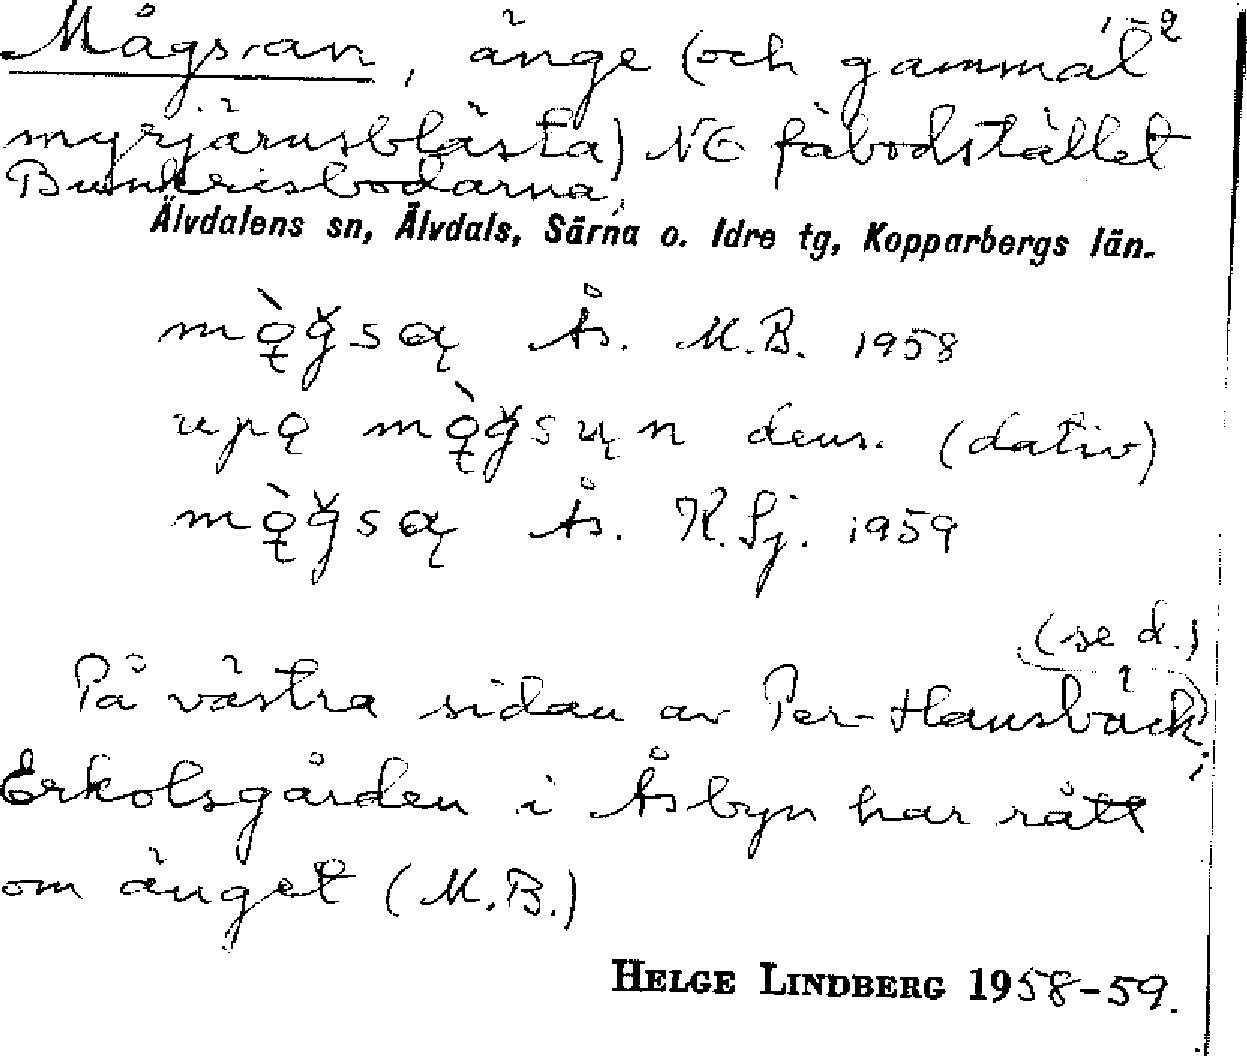 Mågs-an, änge (och gammal
myrjärnsblästa) NÖ fäbodstället
Bunkrisbodarna,
Älvdalens sn, Älvdals, Särna o. Idre tg, Kopparbergs län.
Ås. M.B. 1958
dens. (dativ)
Ås. K.Sj. 1959
(se d.)
På västra sidan av Per-Hansbäck;
Erkolsgården i Åsbyn har rått
om änget (M.B.)
HELGE LINDBERG 1958-59.